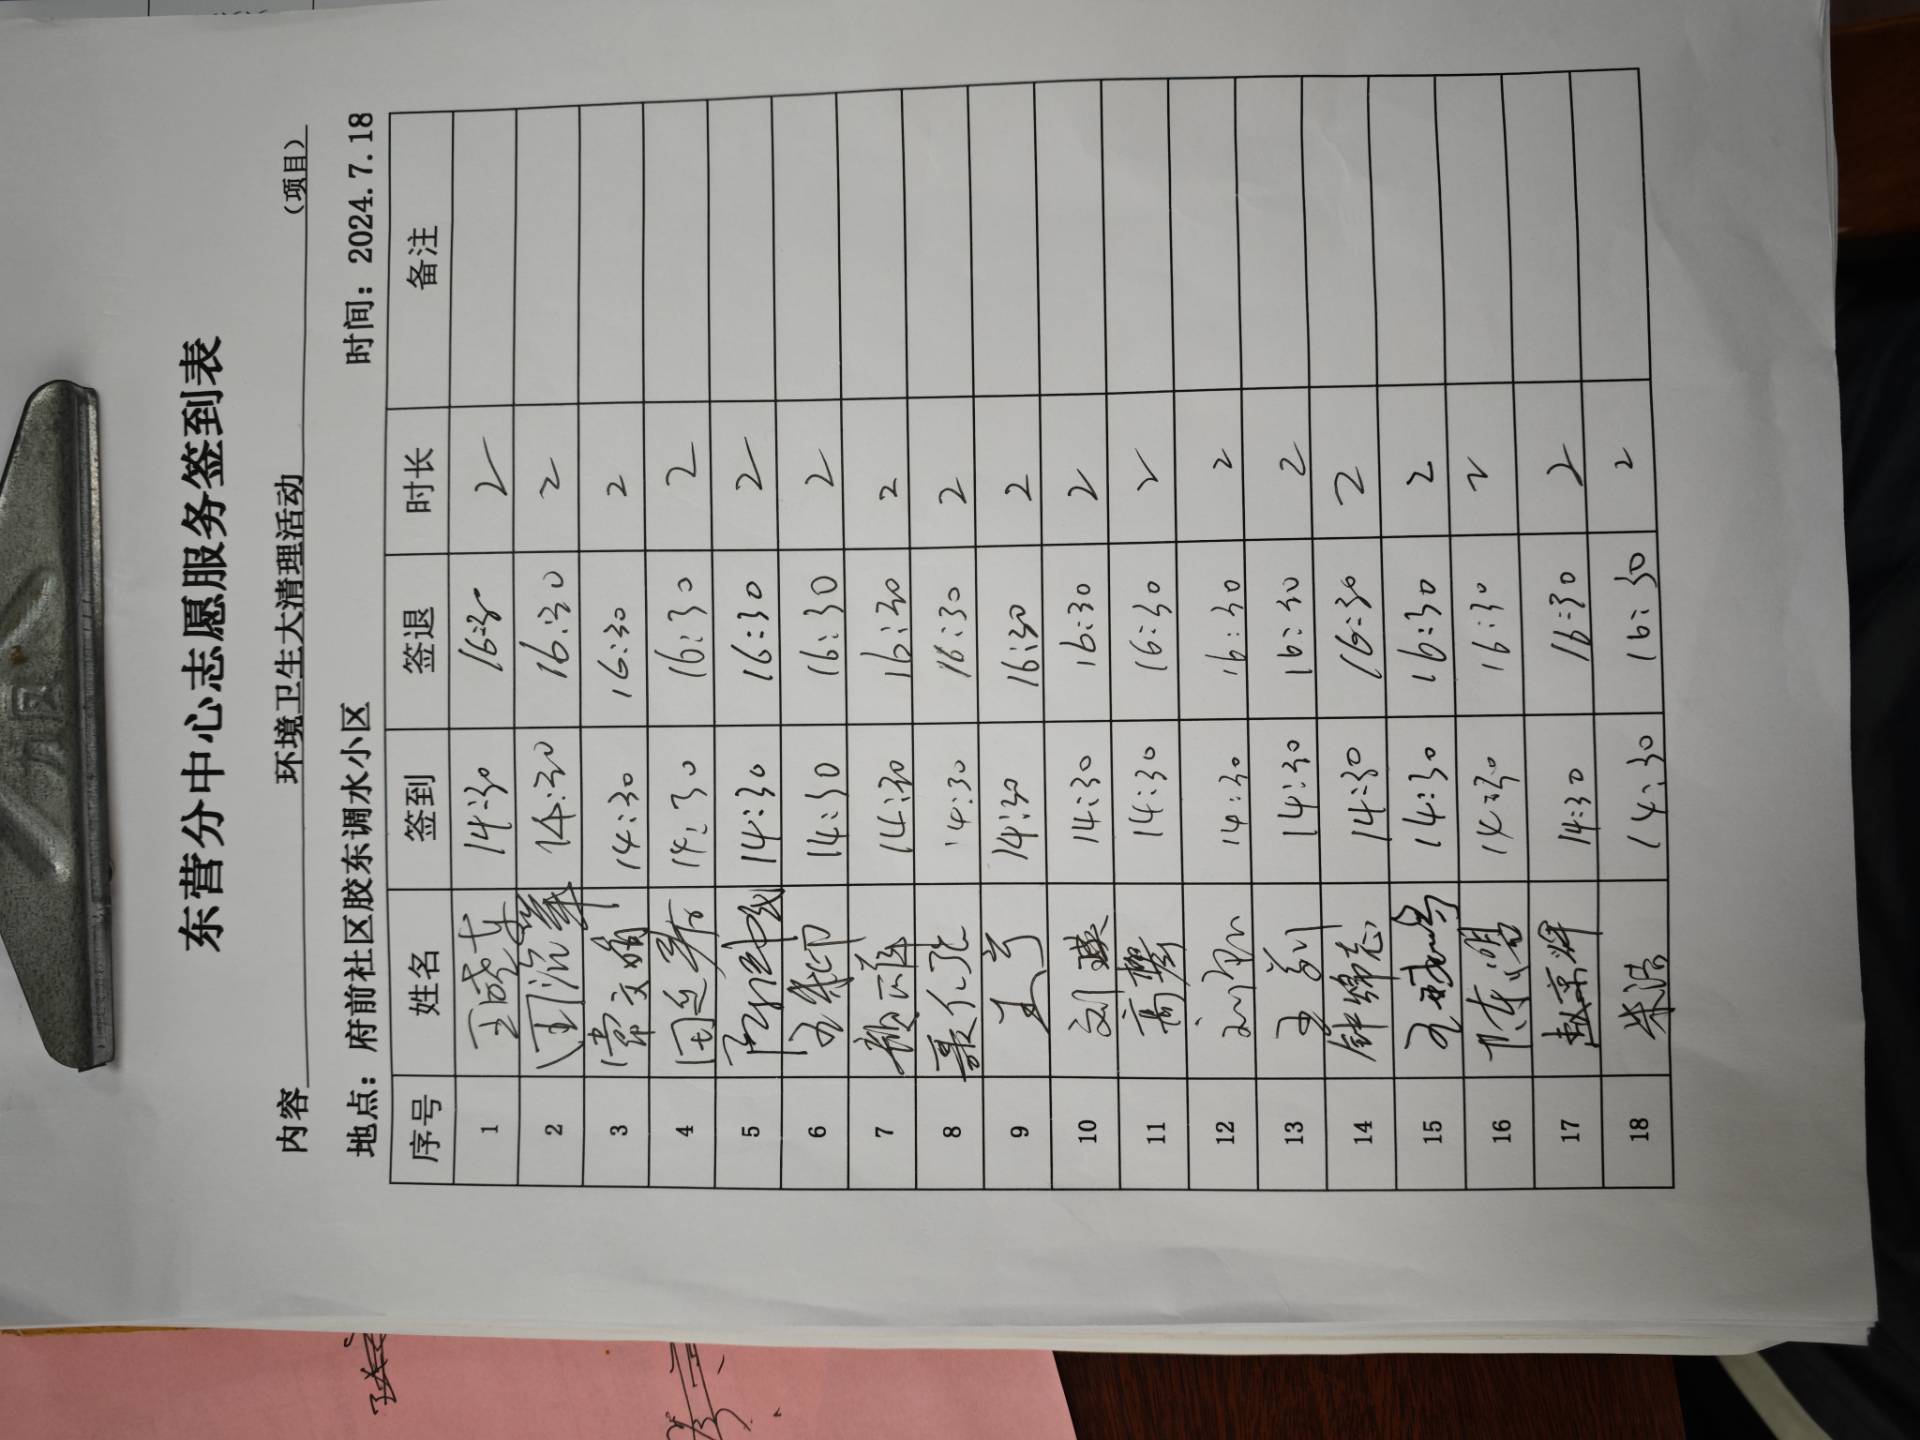 东营分中心志愿服务签到表
内容 环境卫生大清理活动 (项目)
地点：府前社区胶东调水小区 时间：2024.7.18
序号 姓名 签到 签退 时长 备注
1 14:30 16:30 2
2 14:30 16:30 2
3 常文娟 14:30 16:30 2
4 14:30 16:30 2
5 14:30 16:30 2
6 14:30 16:30 2
7 14:30 16:30 2
8 14:30 16:30 2
9 14:30 16:30 2
10 刘瑛 14:30 16:30 2
11 高攀 14:30 16:30 2
12 14:30 16:30 2
13 14:30 16:30 2
14 钟锦志 14:30 16:30 2
15 14:30 16:30 2
16 14:30 16:30 2
17 赵京辉 14:30 16:30 2
18 朱浩 14:30 16:30 2